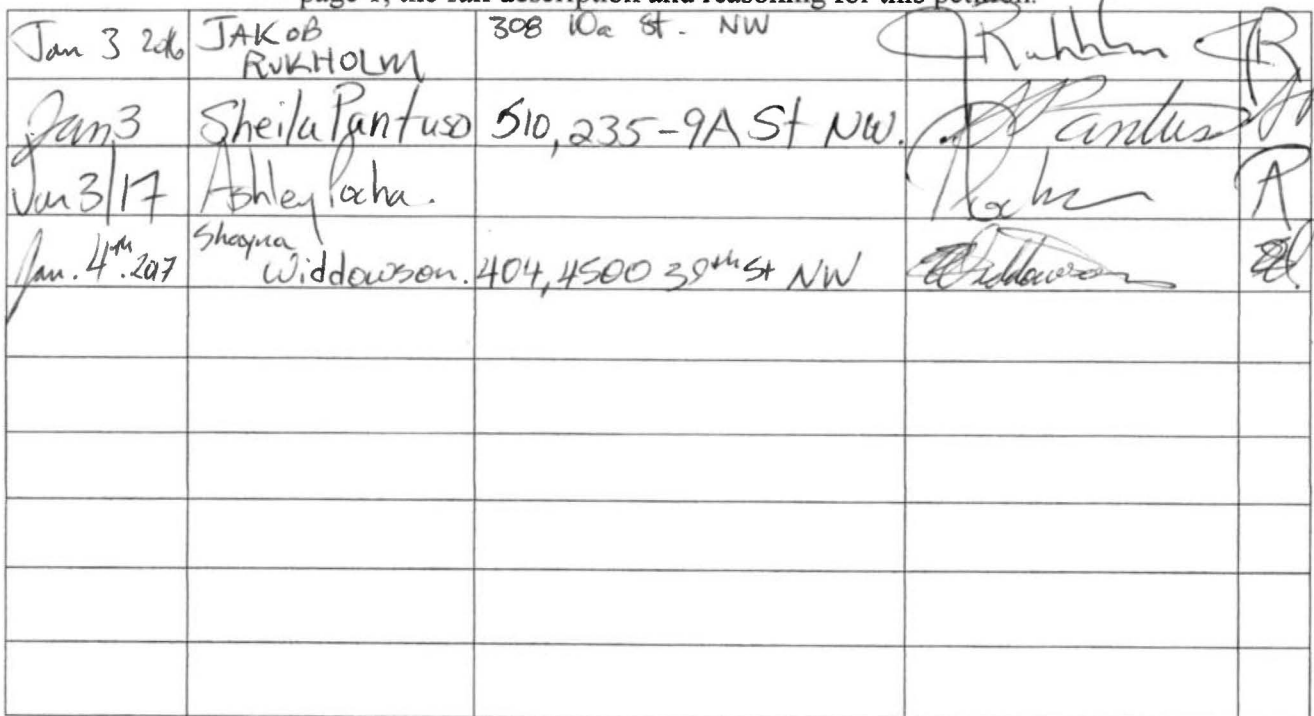 page 1, the full description and reasoning for this petition.
Jan 3 2016 JAKOB 308 10a St. NW
RUKHOLM
Jan 3 Sheila Pantuso 510, 235-9A St NW. Pantuso
Jan 3/17 Ashley Pocha. A
Shayna
Jan. 4th. 2017 Widdowson. 404, 4500 39th St NW Widdowson